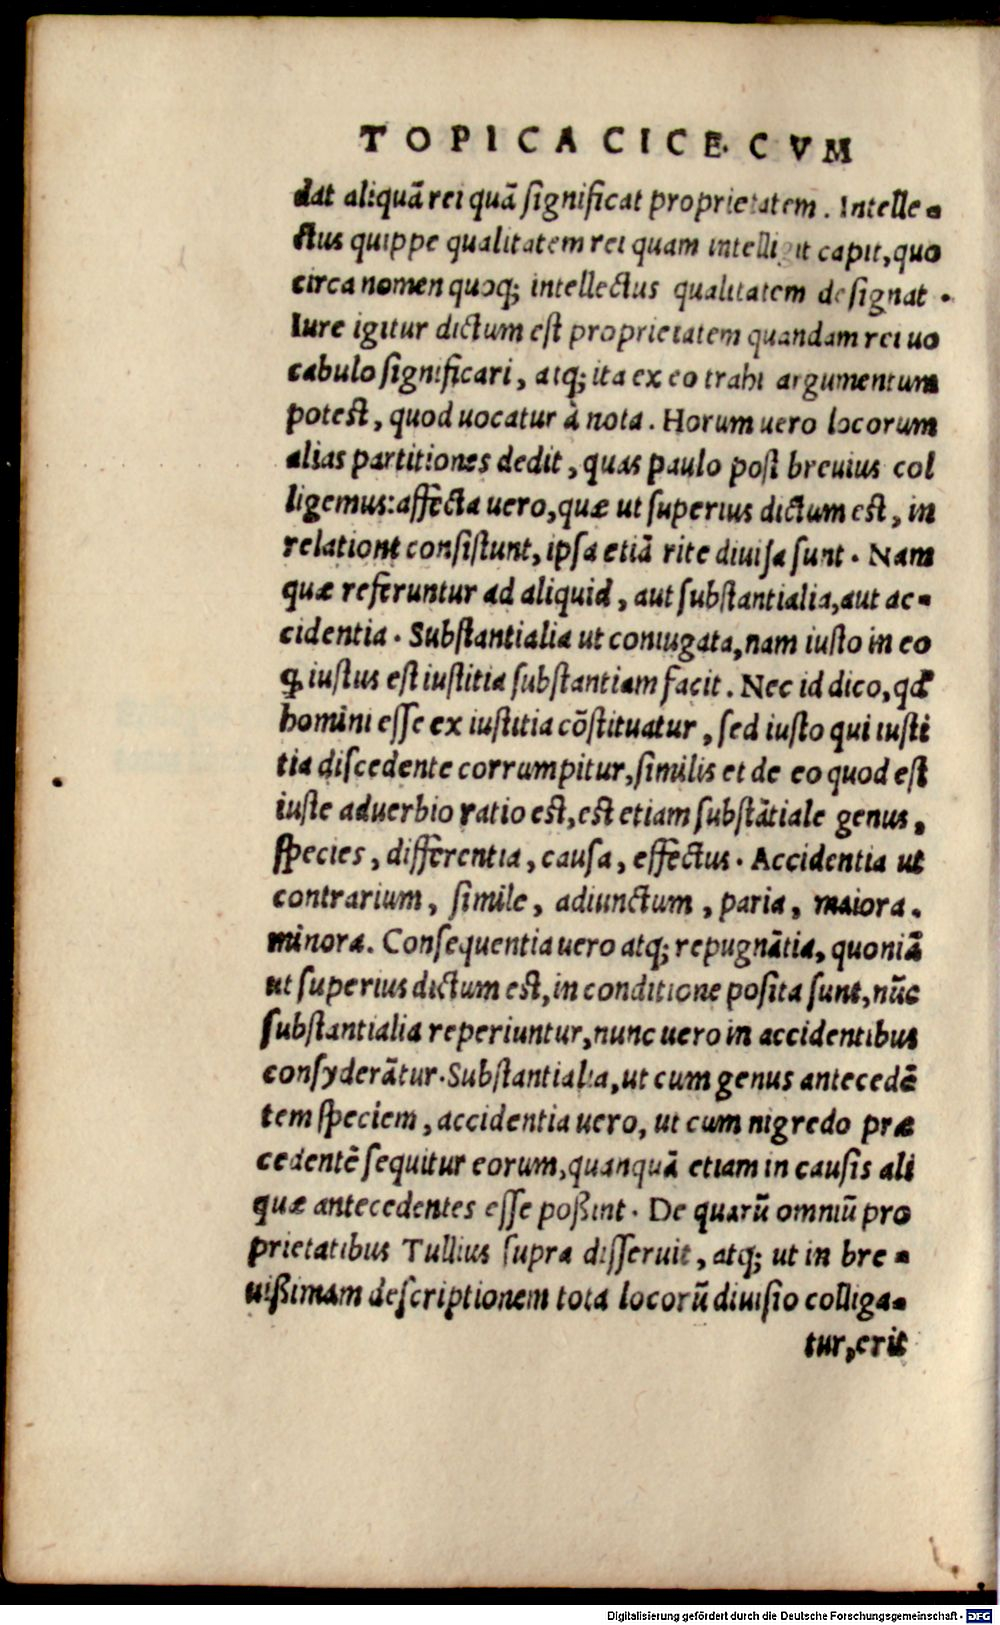 TOPICA CICE. CVM
dat aliquã rei quã ſignificat proprietatem. Intelle-
ctus quippe qualitatem rei quam intelligit capit, quo
circa nomen quoq; intellectus qualitatem deſignat.
Iure igitur dictum eſt proprietatem quandam rei uo
cabulo ſignificari, atq; ita ex eo trahi argumentum
poteſt, quod uocatur à nota. Horum uero locorum
alias partitiones dedit, quas paulo poſt breuius col
ligemus: affecta uero, quæ ut ſuperius dictum eſt, in
relatione conſiſtunt, ipſa etiã rite diuiſa ſunt. Nam
quæ referuntur ad aliquid, aut ſubſtantialia, aut ac-
cidentia. Subſtantialia ut coniugata, nam iuſto in eo
ꝙ iuſtus eſt iuſtitia ſubſtantiam facit. Nec id dico, qđ
homini eſſe ex iuſtitia cõſtituatur, ſed iuſto qui iuſti
tia diſcedente corrumpitur, ſimilis et de eo quod eſt
iuſte aduerbio ratio eſt, eſt etiam ſubſtãtiale genus,
ſpecies, differentia, cauſa, effectus. Accidentia ut
contrarium, ſimile, adiunctum, paria, maiora.
minora. Conſequentia uero atq; repugnãtia, quoniã
ut ſuperius dictum eſt, in conditione poſita ſunt, nũc
ſubſtantialia reperiuntur, nunc uero in accidentibus
conſyderãtur. Subſtantialia, ut cum genus antecedẽ
tem ſpeciem, accidentia uero, ut cum nigredo præ
cedentẽ ſequitur eorum, quanquã etiam in cauſis ali
quæ antecedentes eſſe poßint. De quarũ omniũ pro
prietatibus Tullius ſupra diſſeruit, atq; ut in bre-
uißimam deſcriptionem tota locorũ diuiſio colliga-
tur, erit
Digitalisierung gefördert durch die Deutsche Forschungsgemeinschaft - DFG